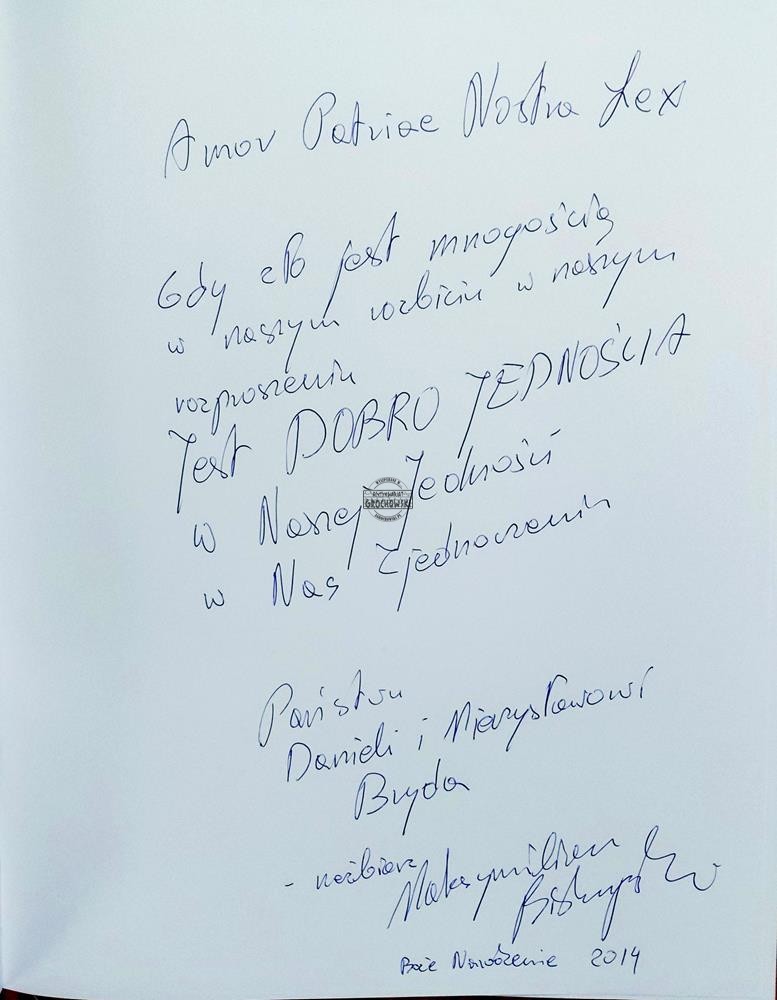 Amor Patriae Nostra Lex
Gdy zło jest mnogością
w naszym rozbiciu w naszym
rozproszeniu
Jest DOBRO JEDNOŚCIA
w Naszej Jedności
w Nas Zjednoczeniu
Państwu
Danieli i Mieczysławowi
Bryda
- rzeźbiarz
Maksymilian
Biskupski
Boże Narodzenie 2014
GROCHOWSKI